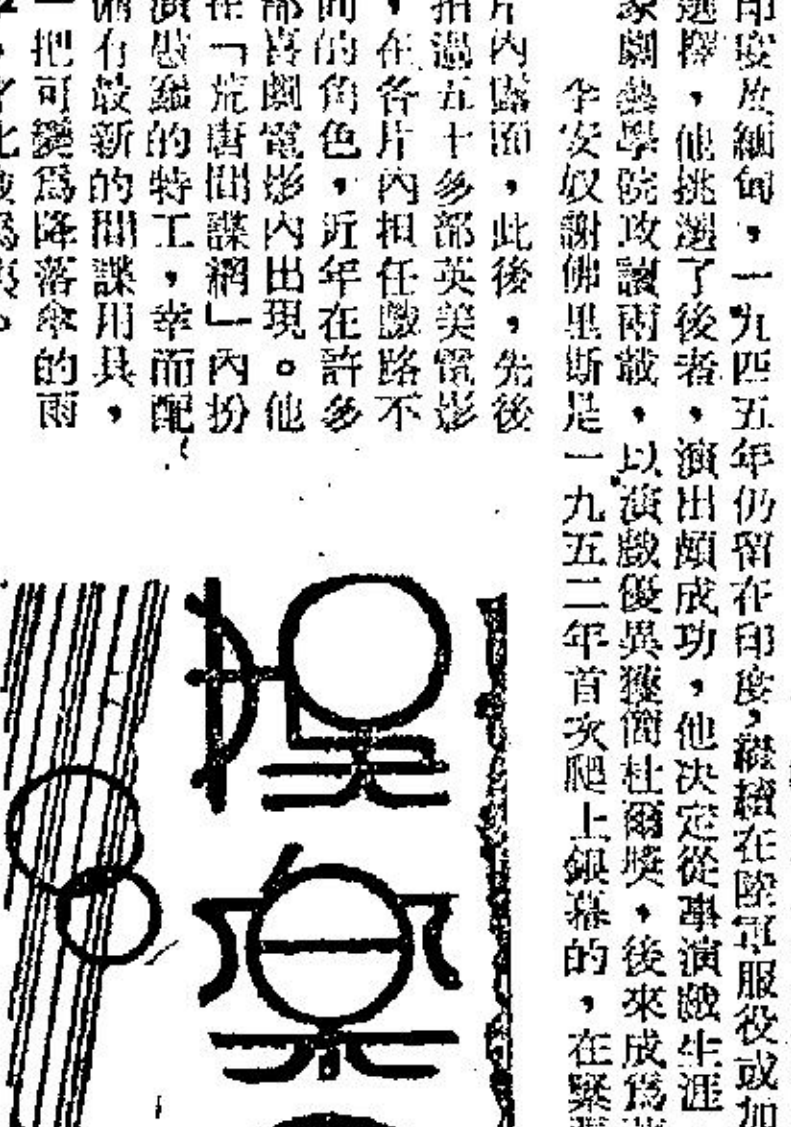 印度及緬甸，一九四五年仍留在印度，繼續在陸軍服役或加
選擇，他挑選了後者，演出頗成功，他決定從事演戲生涯
家劇藝學院攻讀兩載，以演戲優異獲簡杜爾獎，後來成爲
李安奴謝佛里斯是一九五二年首次爬上銀幕的，在
片內露面，此後，先後
拍過五十多部英美電影
，在各片內担任戲路不
同的角色，近年在許多
部喜劇電影內出現。他
在「荒唐間諜網」內扮
演愚蠢的特工，幸而配
備有最新的間諜用具，
一把可變爲降落傘的雨
娛樂